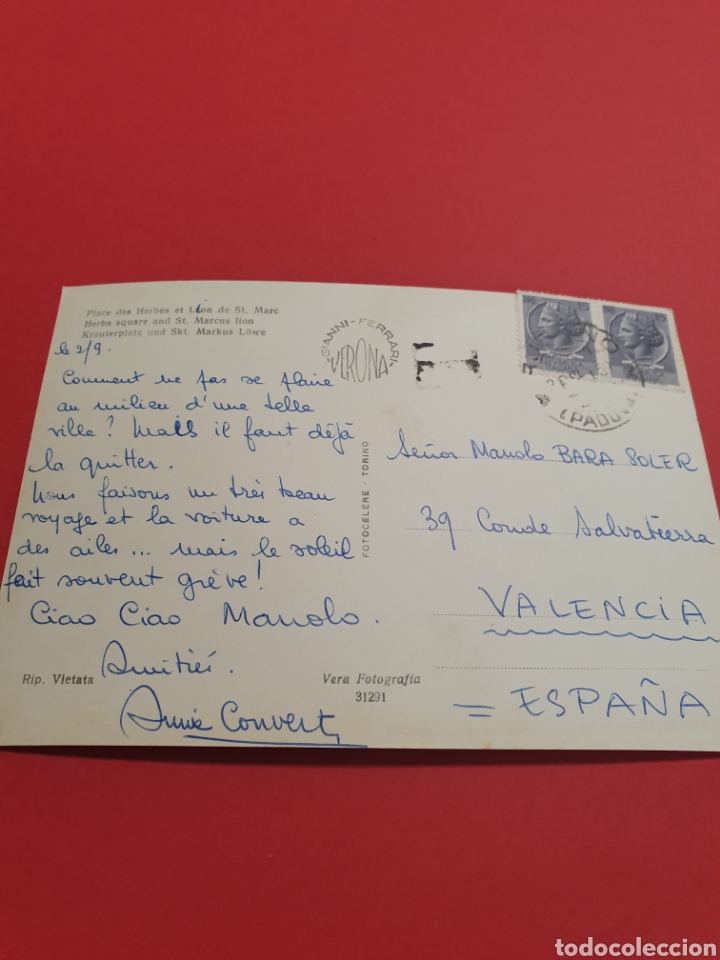 Place des Herbes et Lion de St. Marc
Herbs square and St. Marcus lion
Kräuterplatz und Skt. Markus Löwe
le 2/9.
Comment ne pas se plaire
au milieu d'une telle
ville? Mais il faut déjà
la quitter.
Nous faisons un très beau
voyage et la voiture a
des ailes... mais le soleil
fait souvent grève!
Ciao Ciao Manolo.
Amitiés.
Annie Convert
Rip. Vietata
Vera Fotografia
31291
GIANNI-FERRARI
VERONA
FOTOCELERE - TORINO
T
(PADOVA)
Señor Manolo BARA SOLER
39 Conde Salvatierra
VALENCIA
= ESPAÑA
todocoleccion